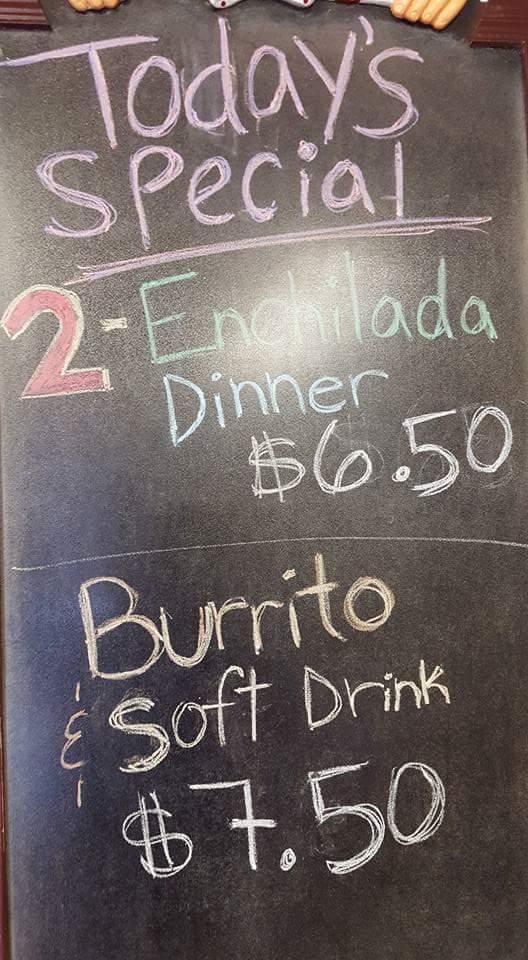 Today's
Special
2-Enchilada
Dinner
$6.50
Burrito
& Soft Drink
$7.50